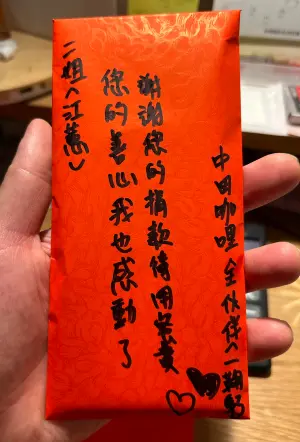 中田咖哩 全伙伴(一鞠躬
謝謝您的捐款待用餐費
您的善心我也感動了
二姐(江蕙)